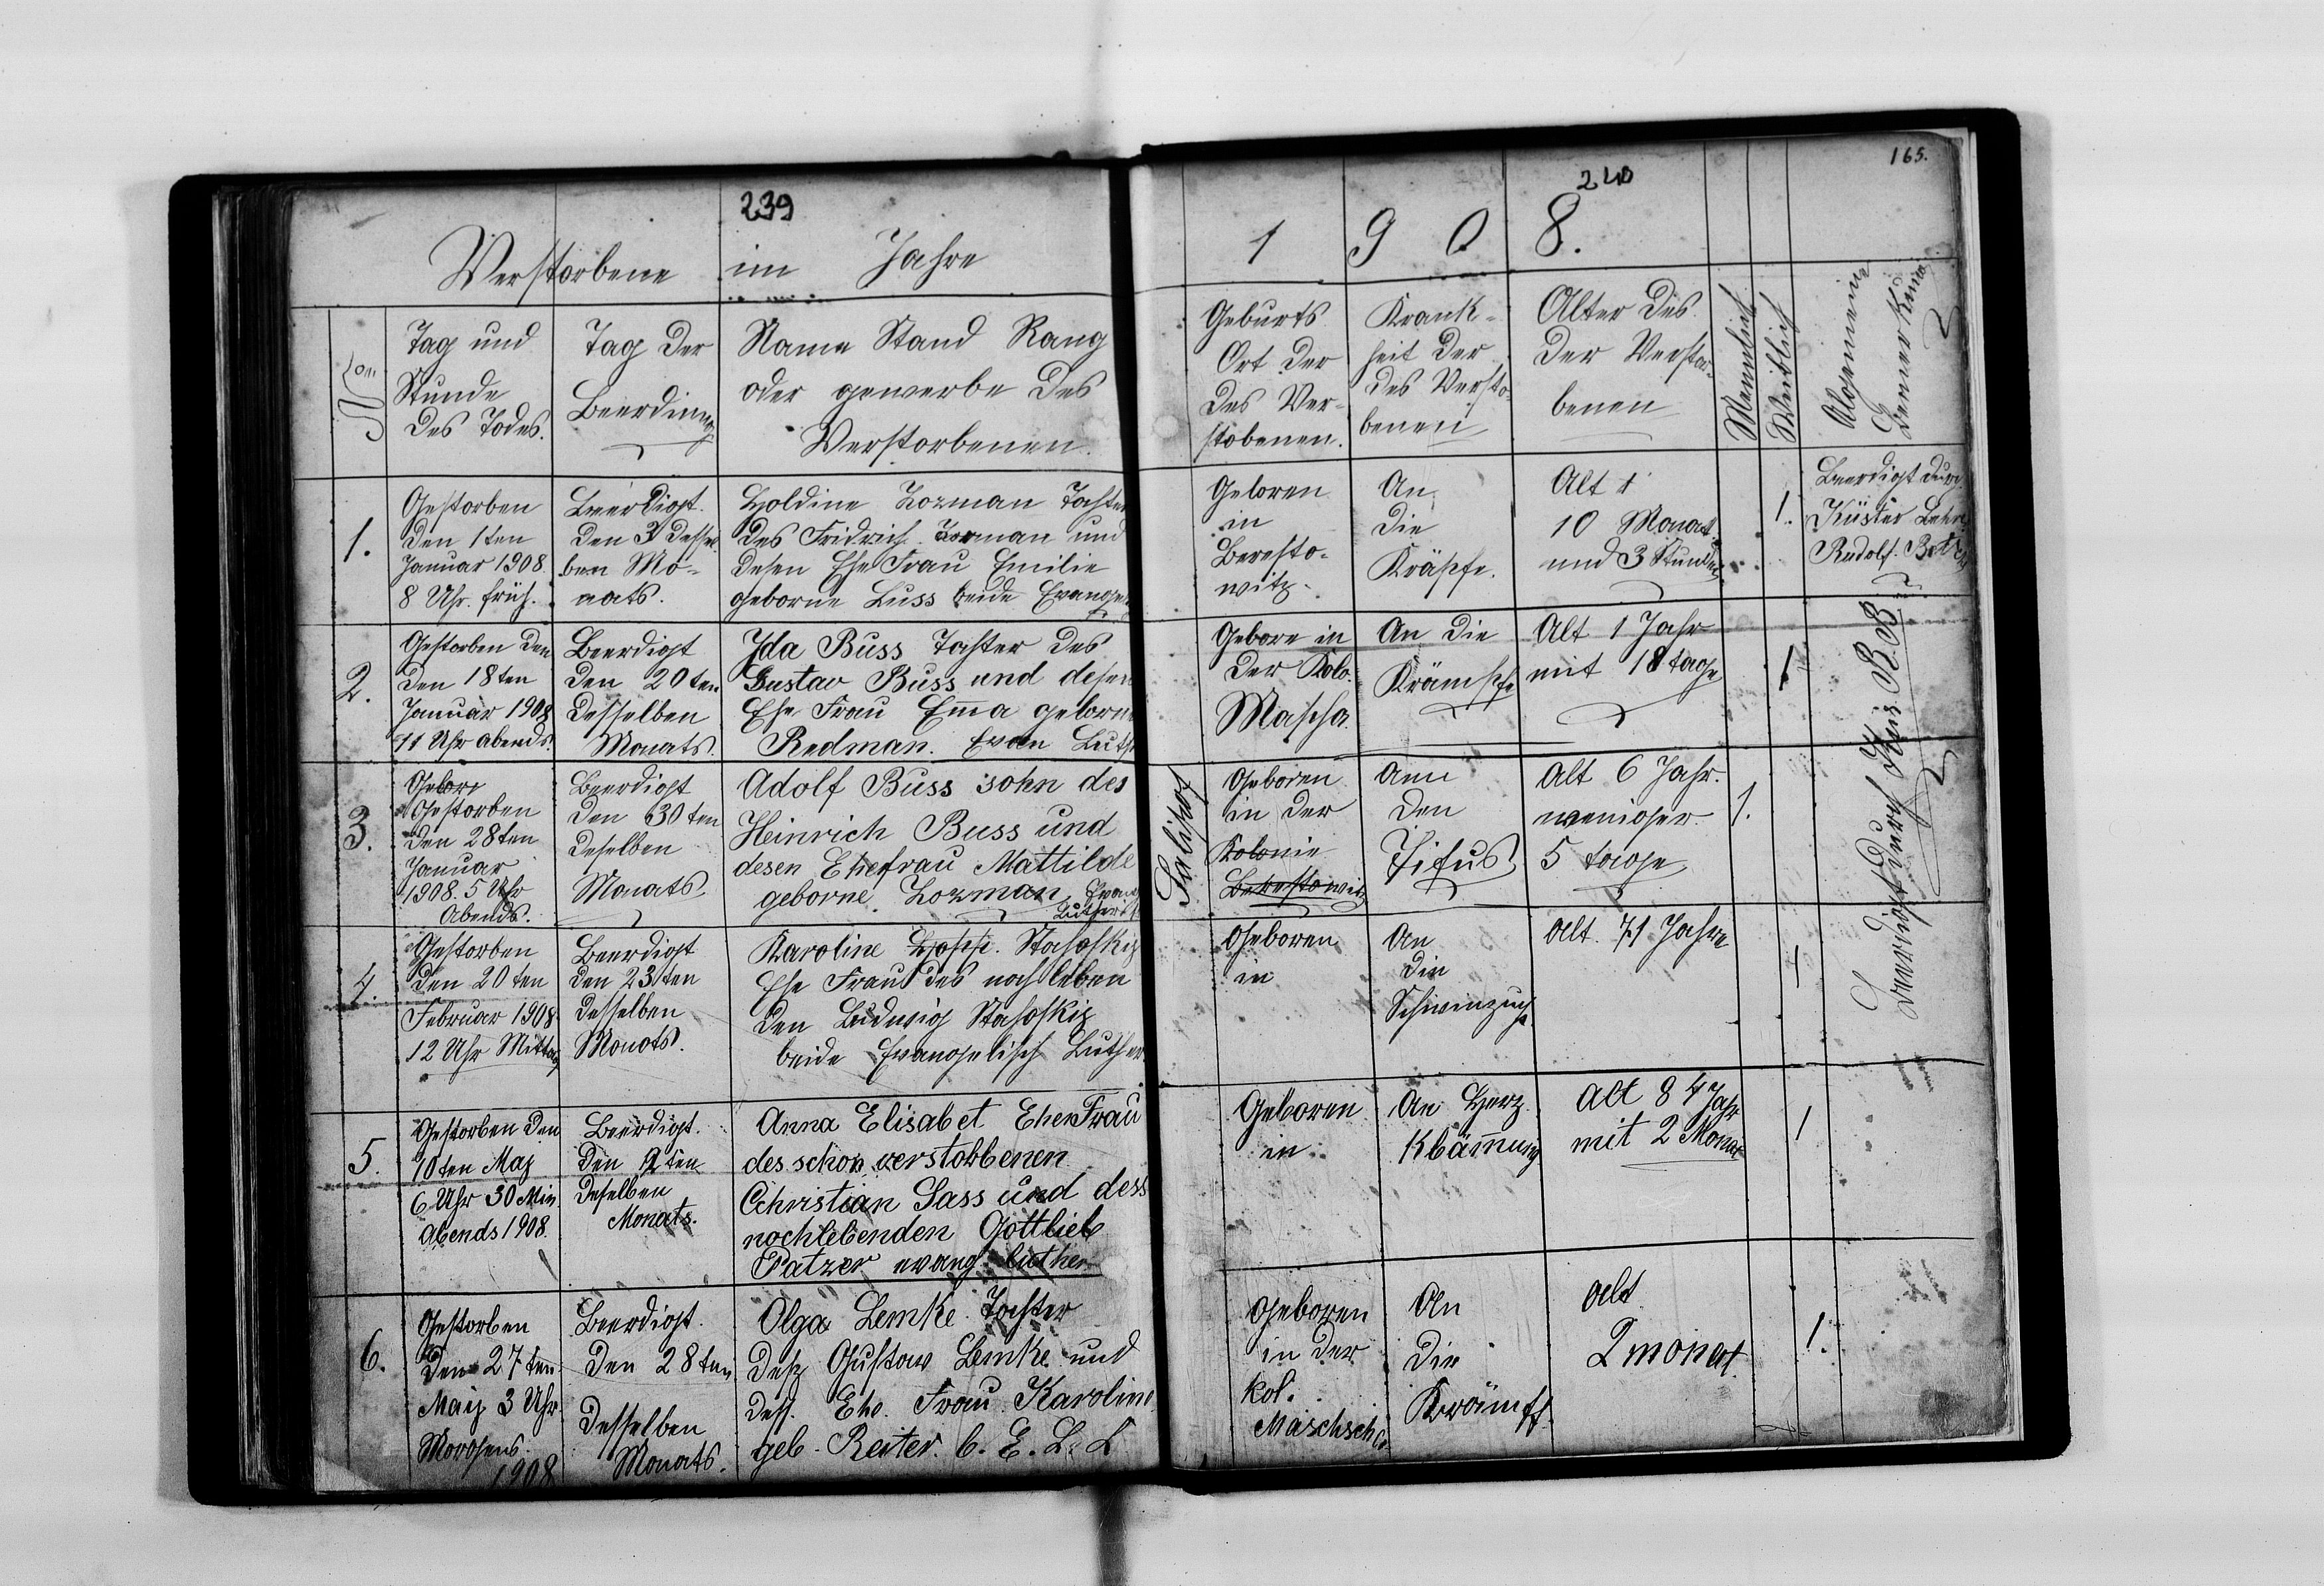 239
Verstorbene im Jahre
No
Tag und
Stunde
des Todes.
Tag der
Beerdinung
Name Stand Rang
oder gewerbe des
Verstorbenen.
1.
Gestorben
den 1ten
Januar 1908.
8 Uhr. früh.
Beerdigt.
den 3 dessel
ben Mo-
nats.
Goldine Lozman Tochter
des Fridrich Lozman und
desen Ehe Frau Emilie
geborne Luss beide Evangel
2.
Gestorben den
den 18ten
Januar 1908
11 Uhr abends.
Beerdigt
den 20ten
desselben
Monats.
Ida Buss Tochter des
Gustav Buss und desen
Ehe Frau Emma geborne
Redman. Evan Luth
3.
Gebore
Gestorben
den 28ten
Januar
1908. 5 Uhr
Abends.
Beerdigt
den 30ten
deselben
Monats
Adolf Buss sohn des
Heinrich Buss und
desen Ehefrau Mattilde
geborne. Lozman Evang
Lutheris
4.
Gestorben
den 20ten
Februar 1908
12 Uhr Mittag
Beerdigt
den 23ten
desselben
Monots.
Karoline
Ehe Frau des noch leben
den Ludwig
beide Evangelisch Luther
5.
Gestorben den
10ten Maj
6 Uhr 30 Min.
Abends 1908.
Beerdigt.
den ten
deselben
Monats.
Anna Elisabet EhenFrau
des schon verstobbenen
Cchristian Sass und dess
nochlebenden Gottlieb
Patzer evang. luther
6.
Gestorben
den 27ten
Maij 3 Uhr.
Morgens.
1908
Beerdigt.
den 28ten
desselben
Monats.
Olga Lemke Tochter
des Gustav Lemke und
dess. Ehe. Frau Karoline
geb. Reiter. b. E. L. L
240
165.
1908.
Geburts
Ort der
des Ver-
stobenen.
Krank-
heit der
des Versto
benen
Alter des
der Verstor-
benen
Mennlich
Weiblich
Geboren
in
Beresto-
witz.
An
die
Kräpfe.
Alt
10 Monat
und 3 Stunden
1.
Beerdigt durch
Küster Lehrer
Rudolf.
Gebore in
der Kolo.
Mascha.
An die
Krämpfe
Alt 1 Jahr
mit 18 tage
1
Geboren
in der
Kolonie
Berestowitz
Ann
den
Tifus
Alt 6 Jahr.
weniger
5 tage
1.
Beerdigt durch Küs. R. B
Geboren
in
An
die
Schwinzucht
Alt. 71 Jahre
1
Geboren
in
An Herz
Klämung
Alt 84 Jahr
mit 2 Monat
1
Geboren
in der
Kol.
Maschscha
An
die
Krämpf.
alt
2 monat
1.